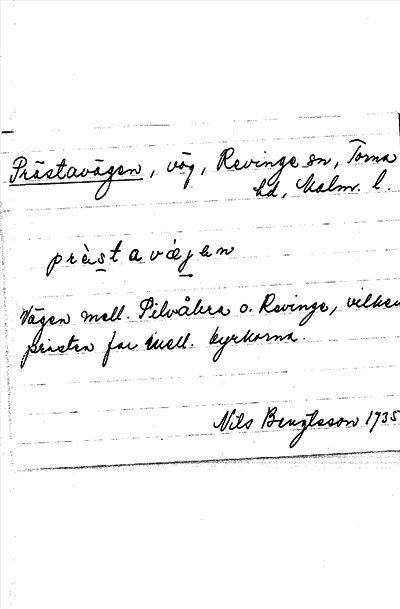 Prästavägen, väg, Revinge sn, Torna
hd, Malm. l.
prästavægen
Vägen mell. Silvåkra o. Revinge, vilken
prästen for mell. kyrkorna.
Nils Bengtsson 1935